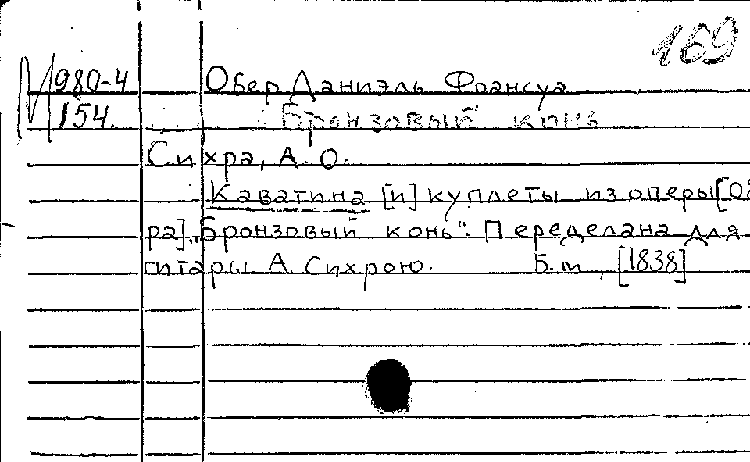 169
М 980-4
154
Обер Даниэль Франсуа
Бронзовый конь
Сихра, А. О.
Каватина [и] куплеты из оперы [Обе
ра] „Бронзовый конь“. Переделана для
гитары А. Сихрою. Б. м., [1838]